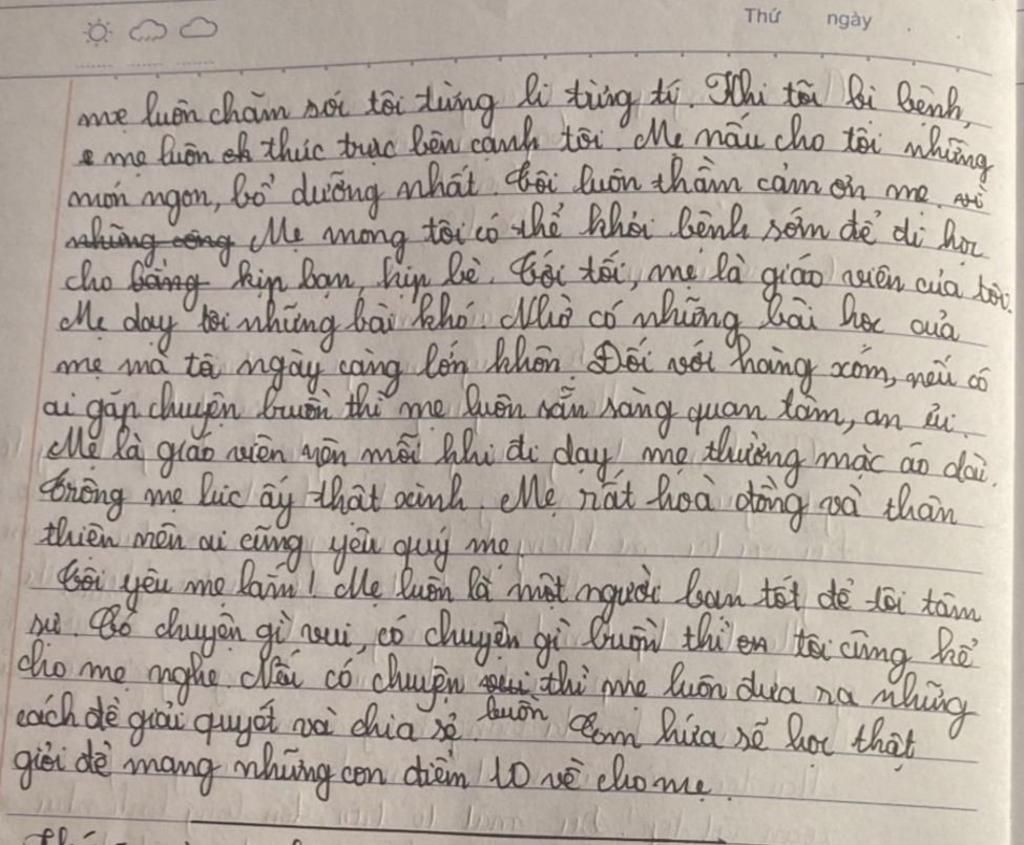 Thứ ngày
mẹ luôn chăm sói tôi từng li từng tí. Khi tôi bị bệnh,
mẹ luôn thức trực bên cạnh tôi. Mẹ nấu cho tôi những
món ngon, bổ dưỡng nhất. Tôi luôn thầm cảm ơn mẹ. vì
những công Mẹ mong tôi có thể khỏi bệnh sớm để đi học
cho bằng kịp bạn, kịp bè. Tối tối, mẹ là giáo viên của tôi.
Mẹ dạy tôi những bài khó. Nhờ có những bài học của
mẹ mà tô ngày càng lớn khôn. Đối với hàng xóm, nếu có
ai gặp chuyện buồn thì mẹ luôn sẵn sàng quan tâm, an ủi.
Mẹ là giáo viên nên mỗi khi đi dạy mẹ thường mặc áo dài.
Trông mẹ lúc ấy thật xinh. Mẹ rất hoà đồng và thân
thiện nên ai cũng yêu quý mẹ.
Tôi yêu mẹ lắm! Mẹ luôn là một người bạn tốt để tôi tâm
sự. Có chuyện gì vui, có chuyện gì buồn thì em tôi cũng kể
cho mẹ nghe. Nếu có chuyện vui thì mẹ luôn đưa ra những
cách để giải quyết và chia sẻ. buồn Con hứa sẽ học thật
giỏi để mang những con điểm 10 về cho mẹ.